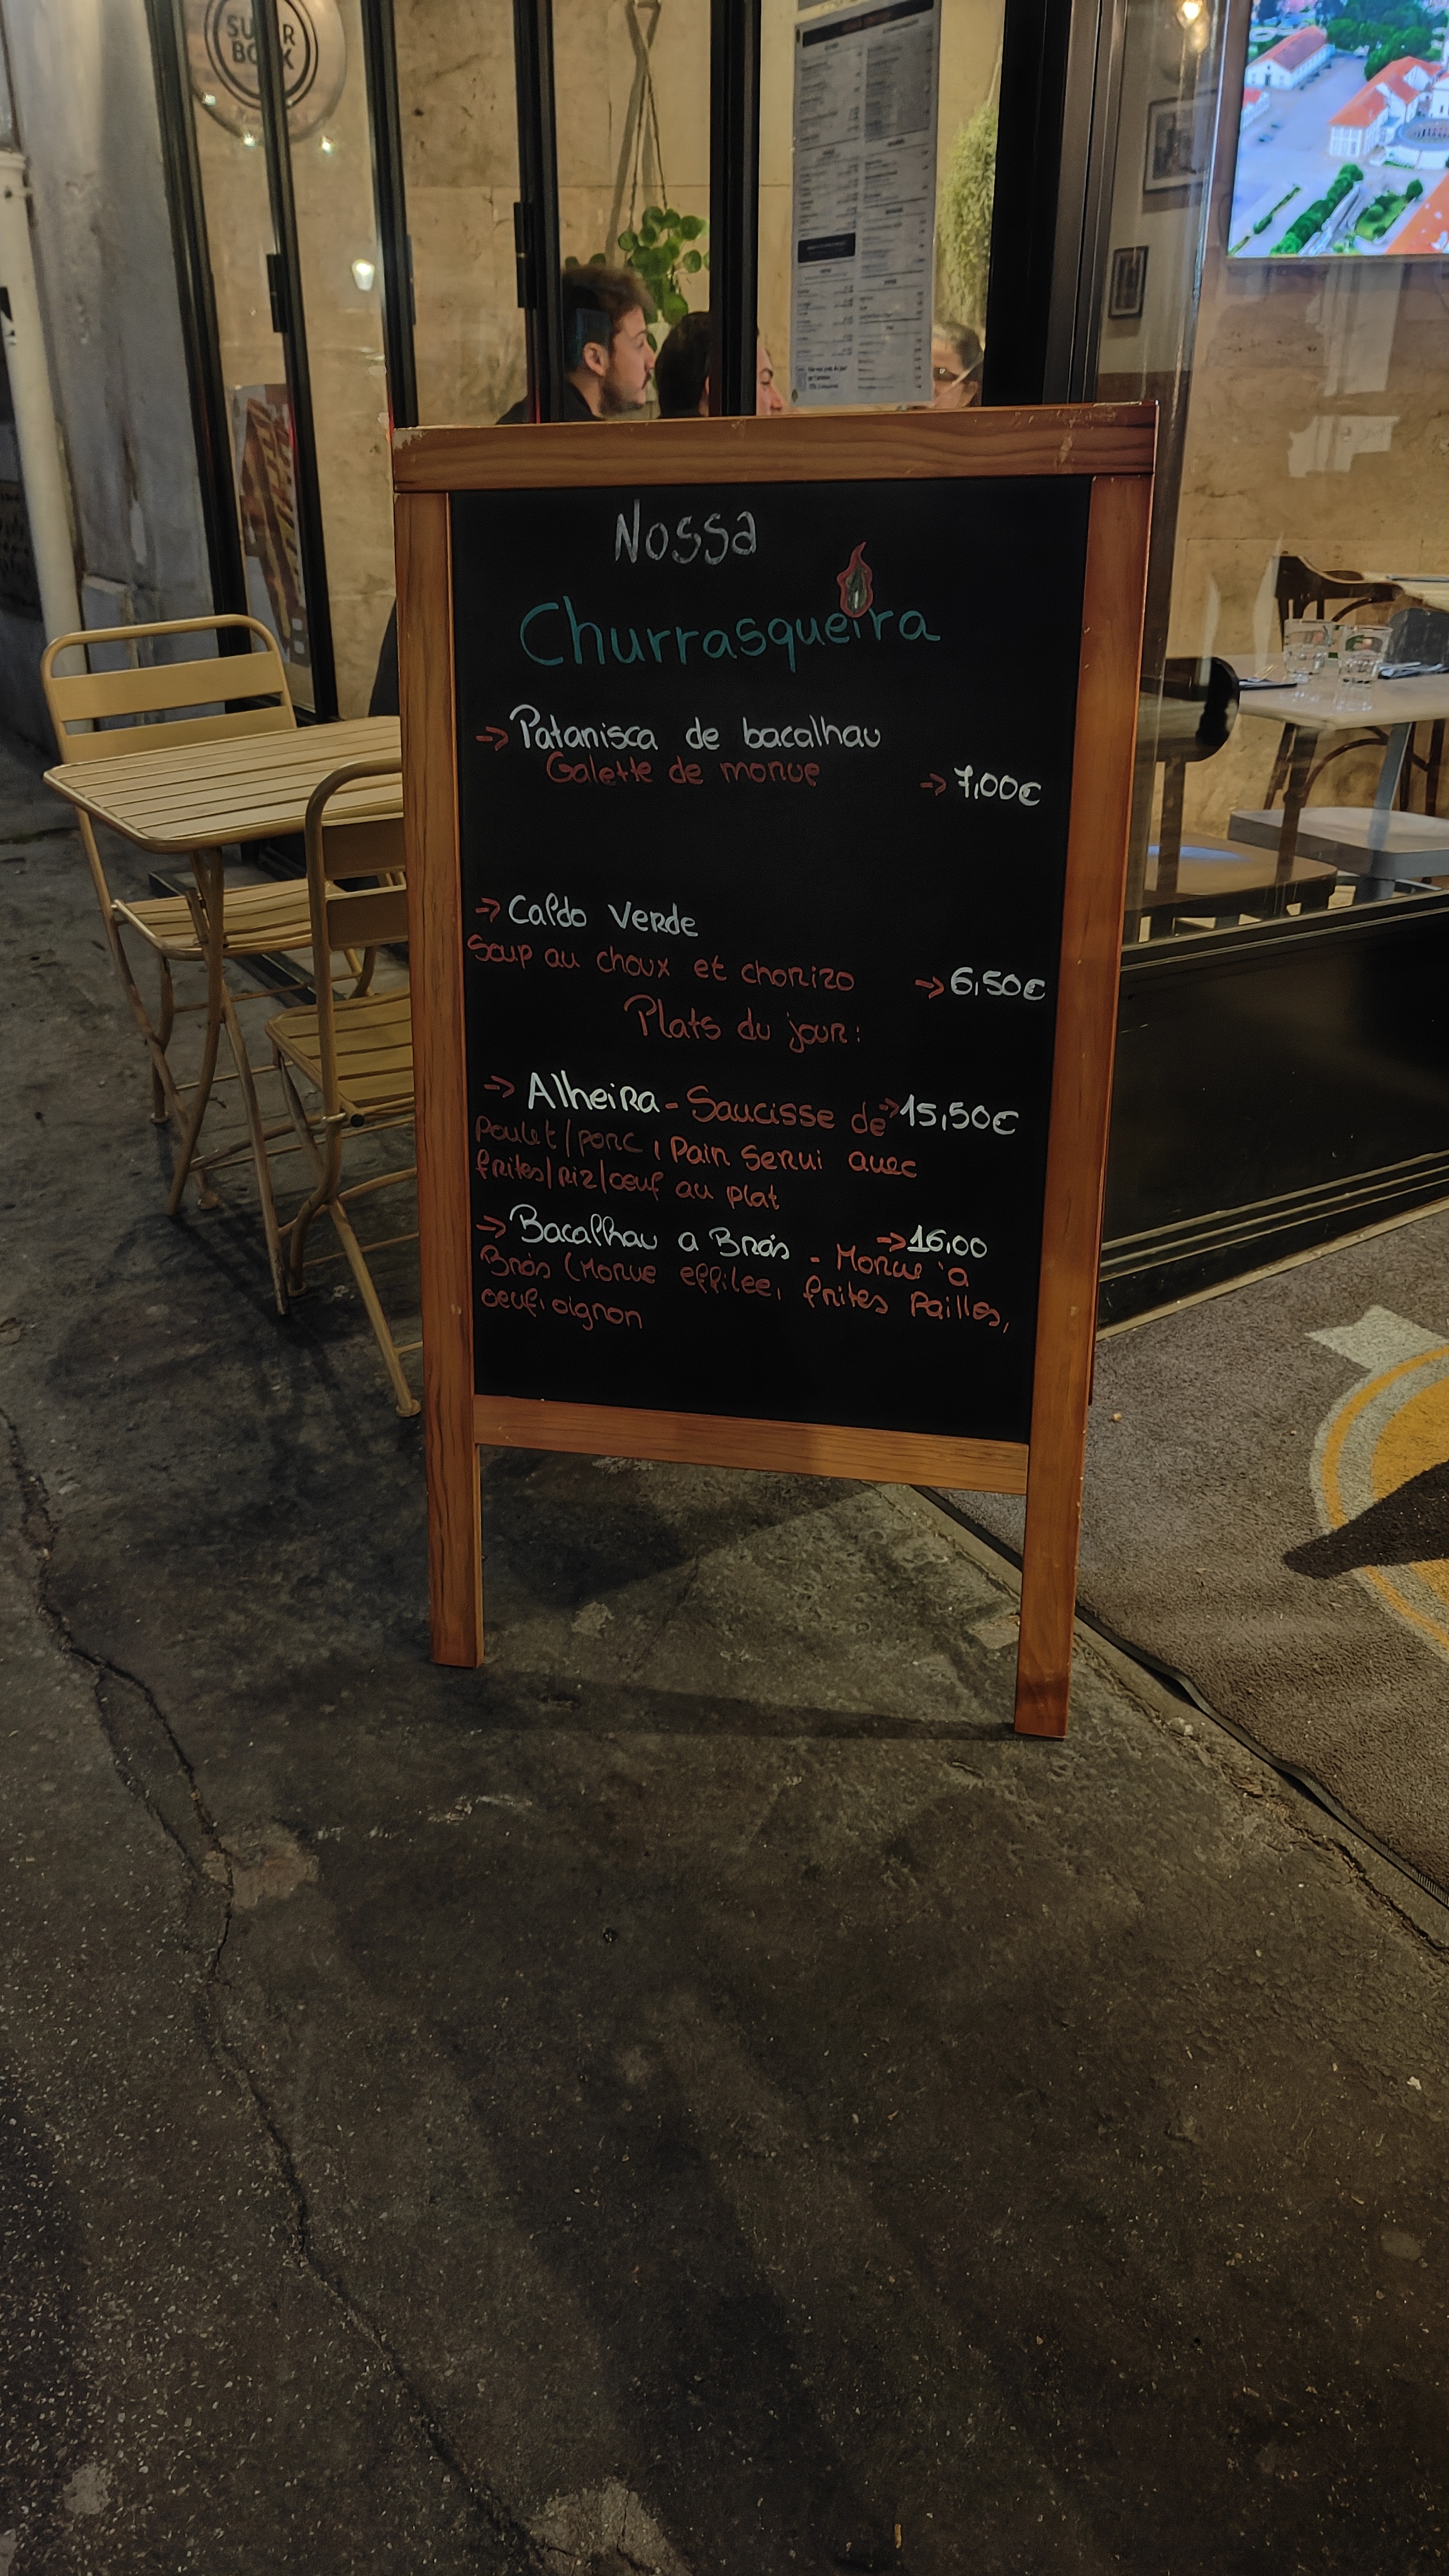 SUPER
BOCK
Nossa
Churrasqueira
-> Patanisca de bacalhau
Galette de morue -> 7,00€
-> Caldo Verde
Soup au choux et chorizo -> 6,50€
Plats du jour:
-> Alheira - Saucisse de -> 15,50€
poulet/porc, pain servi avec
frites/riz/œuf au plat
-> Bacalhau a Brás -> 16,00
- Morue à
Brás (Morue effilee, frites pailles,
oeuf, oignon